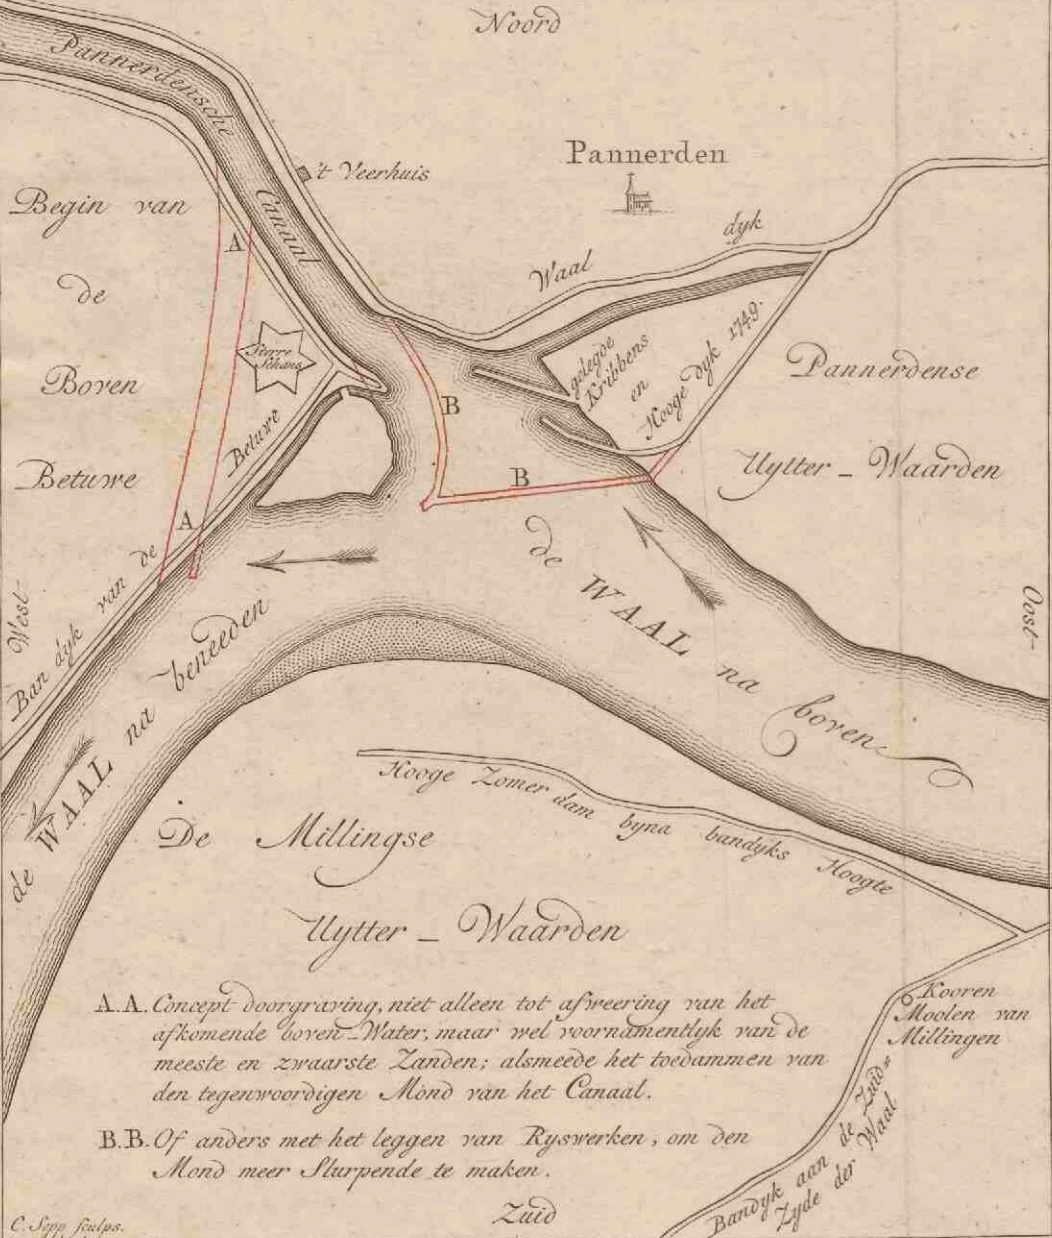 Noord
Pannerdensche
Canaal
't Veerhuis
Pannerden
Waal dyk
Begin van
de
Boven
Betuwe
A
Sterre
Schans
B
gelegde
Kribbens
en
Hooge dyk 1749.
Pannerdense
Uytter - Waarden
B
A
Ban dyk van de Betuwe
West
Oost
de WAAL na boven
de WAAL na beneeden
Hooge Zomer dam byna bandyks Hoogte
De Millingse
Uytter - Waarden
Kooren
Moolen van
Millingen
A.A. Concept doorgraving, niet alleen tot afweering van het
afkomende boven-Water, maar wel voornamentlyk van de
meeste en zwaarste Zanden; alsmeede het toedammen van
den tegenwoordigen Mond van het Canaal.
B.B. Of anders met het leggen van Ryswerken, om den
Mond meer Slurpende te maken.
Bandyk aan de Zuid=
Zyde der Waal
Zuid
C. Sepp sculps.